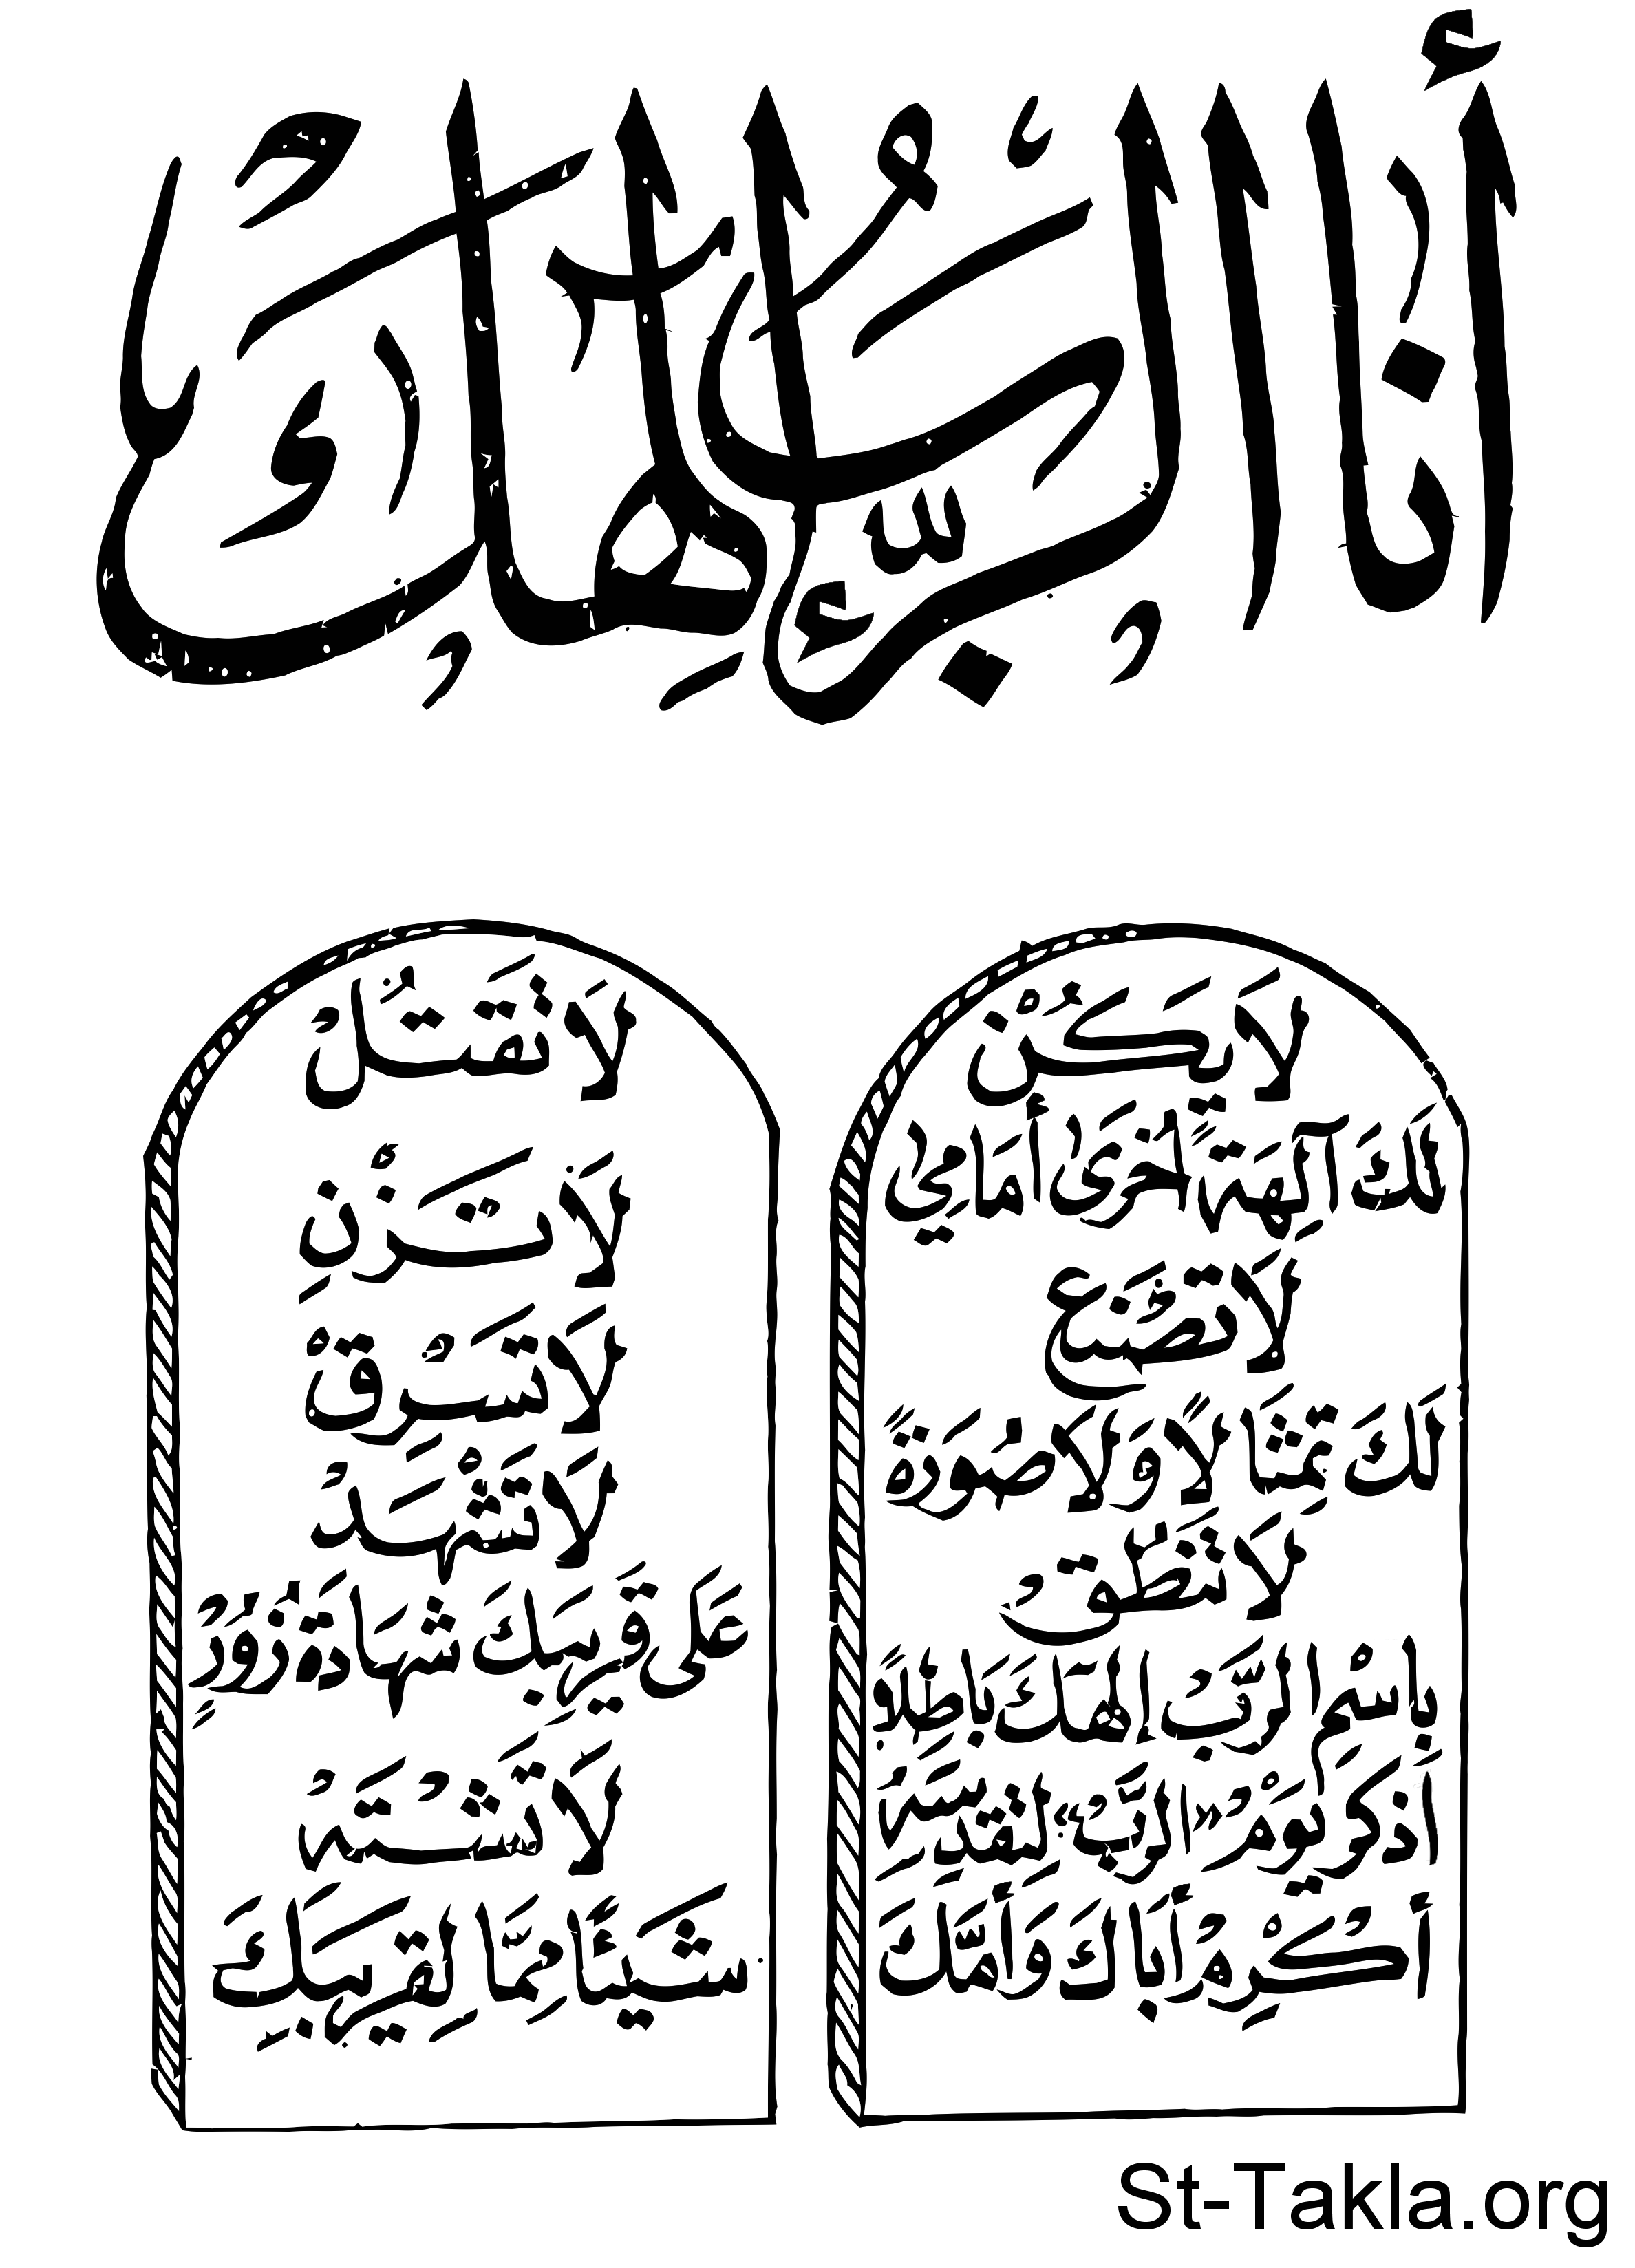 أَنَا الرَّبُّ إِلَهُكَ
لَا يَكُنْ
لَكَ آلِهَةٌ أُخْرَى أَمَامِي
لَا تَصْنَعْ
لَكَ تِمْثَالًا وَلَا صُورَةً
لَا تَنْطِقْ
بِاسْمِ الرَّبِّ إِلَهِكَ بَاطِلًا
اُذْكُرْ يَوْمَ السَّبْتِ لِتُقَدِّسَهُ
أَكْرِمْ أَبَاكَ وَأُمَّكَ
لَا تَقْتُلْ
لَا تَزْنِ
لَا تَسْرِقْ
لَا تَشْهَدْ
عَلَى قَرِيبِكَ شَهَادَةَ زُورٍ
لَا تَشْتَهِ
شَيْئًا مِمَّا لِقَرِيبِكَ
St-Takla.org